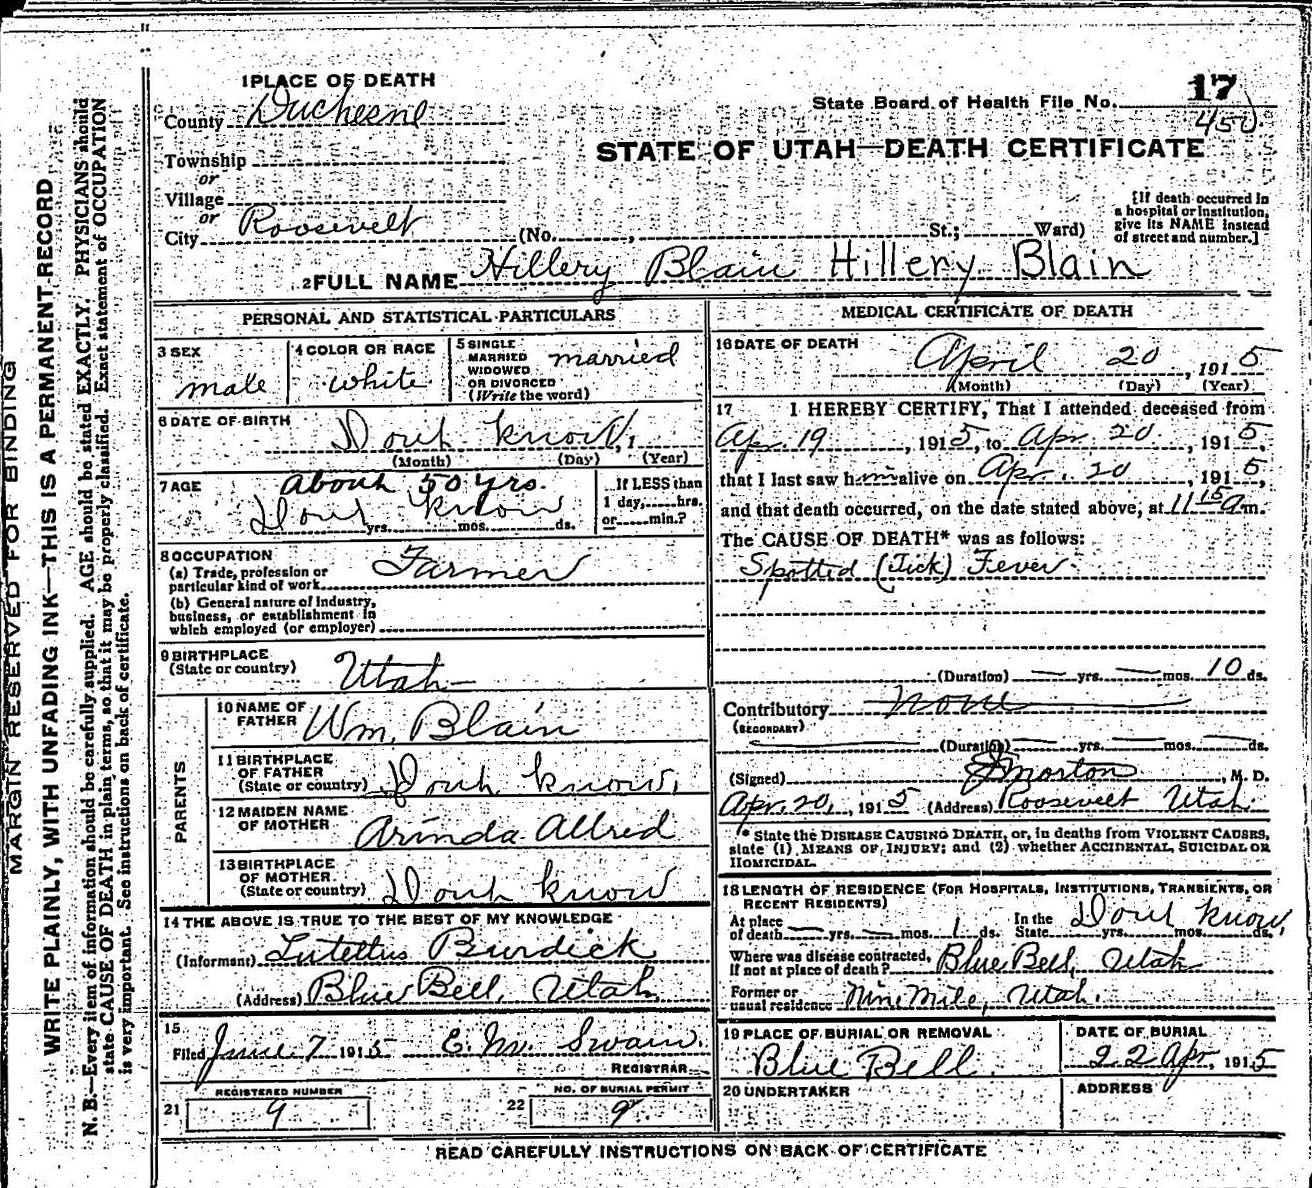 MARGIN RESERVED FOR BINDING
WRITE PLAINLY, WITH UNFADING INK—THIS IS A PERMANENT RECORD
N. B.—Every item of information should be carefully supplied. AGE should be stated EXACTLY. PHYSICIANS should
state CAUSE OF DEATH in plain terms, so that it may be properly classified. Exact statement of OCCUPATION
is very important. See instructions on back of certificate.
1 PLACE OF DEATH
County Duchesne
Township
or
Village
or
City Roosevelt (No. , St.; Ward)
State Board of Health File No. 17
450
STATE OF UTAH—DEATH CERTIFICATE
[If death occurred in
a hospital or institution,
give its NAME instead
of street and number.]
2 FULL NAME Hillery Blain Hillery Blain
PERSONAL AND STATISTICAL PARTICULARS
3 SEX
male
4 COLOR OR RACE
white
5 SINGLE
MARRIED
WIDOWED
OR DIVORCED
(Write the word)
married
6 DATE OF BIRTH
Dont know,
(Month) (Day) (Year)
7 AGE About 50 yrs.
Dont know
yrs. mos. ds.
If LESS than
1 day, hrs.
or min.?
8 OCCUPATION
(a) Trade, profession or
particular kind of work Farmer
(b) General nature of industry,
business, or establishment in
which employed (or employer)
9 BIRTHPLACE
(State or country) Utah
PARENTS
10 NAME OF
FATHER Wm. Blain
11 BIRTHPLACE
OF FATHER
(State or country) Dont know,
12 MAIDEN NAME
OF MOTHER Arinda Allred
13 BIRTHPLACE
OF MOTHER
(State or country) Dont know
14 THE ABOVE IS TRUE TO THE BEST OF MY KNOWLEDGE
(Informant) Lutettus Burdick
(Address) Blue Bell, Utah
15
Filed June 7 1915 E. M. Swain.
REGISTRAR
REGISTERED NUMBER
21 9
NO. OF BURIAL PERMIT
22 9
MEDICAL CERTIFICATE OF DEATH
16 DATE OF DEATH
April 20, 1915
(Month) (Day) (Year)
17 I HEREBY CERTIFY, That I attended deceased from
Apr. 19, 1915, to Apr 20, 1915,
that I last saw him alive on Apr. 20, 1915,
and that death occurred, on the date stated above, at 11 15 a m.
The CAUSE OF DEATH* was as follows:
Spotted (Tick) Fever
(Duration) — yrs. — mos. 10 ds.
Contributory none
(SECONDARY)
(Duration) — yrs. — mos. — ds.
(Signed) Morton, M. D.
Apr. 20, 1915 (Address) Roosevelt Utah.
* State the DISEASE CAUSING DEATH, or, in deaths from VIOLENT CAUSES,
state (1) MEANS OF INJURY; and (2) whether ACCIDENTAL, SUICIDAL OR
HOMICIDAL.
18 LENGTH OF RESIDENCE (FOR HOSPITALS, INSTITUTIONS, TRANSIENTS, OR
RECENT RESIDENTS)
At place
of death — yrs. — mos. 1 ds.
In the
State Dont know, yrs. mos. ds.
Where was disease contracted,
If not at place of death? Blue Bell, Utah
Former or
usual residence Nine Mile, Utah.
19 PLACE OF BURIAL OR REMOVAL
Blue Bell.
DATE OF BURIAL
22 Apr, 1915
20 UNDERTAKER
ADDRESS
READ CAREFULLY INSTRUCTIONS ON BACK OF CERTIFICATE